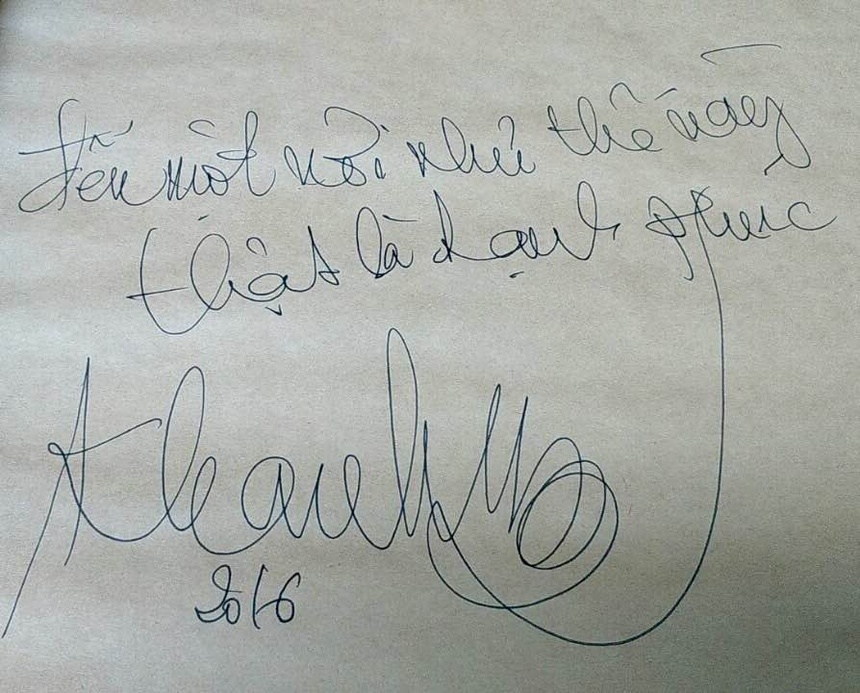 đến một nơi như thế này
thật là hạnh phúc
2016